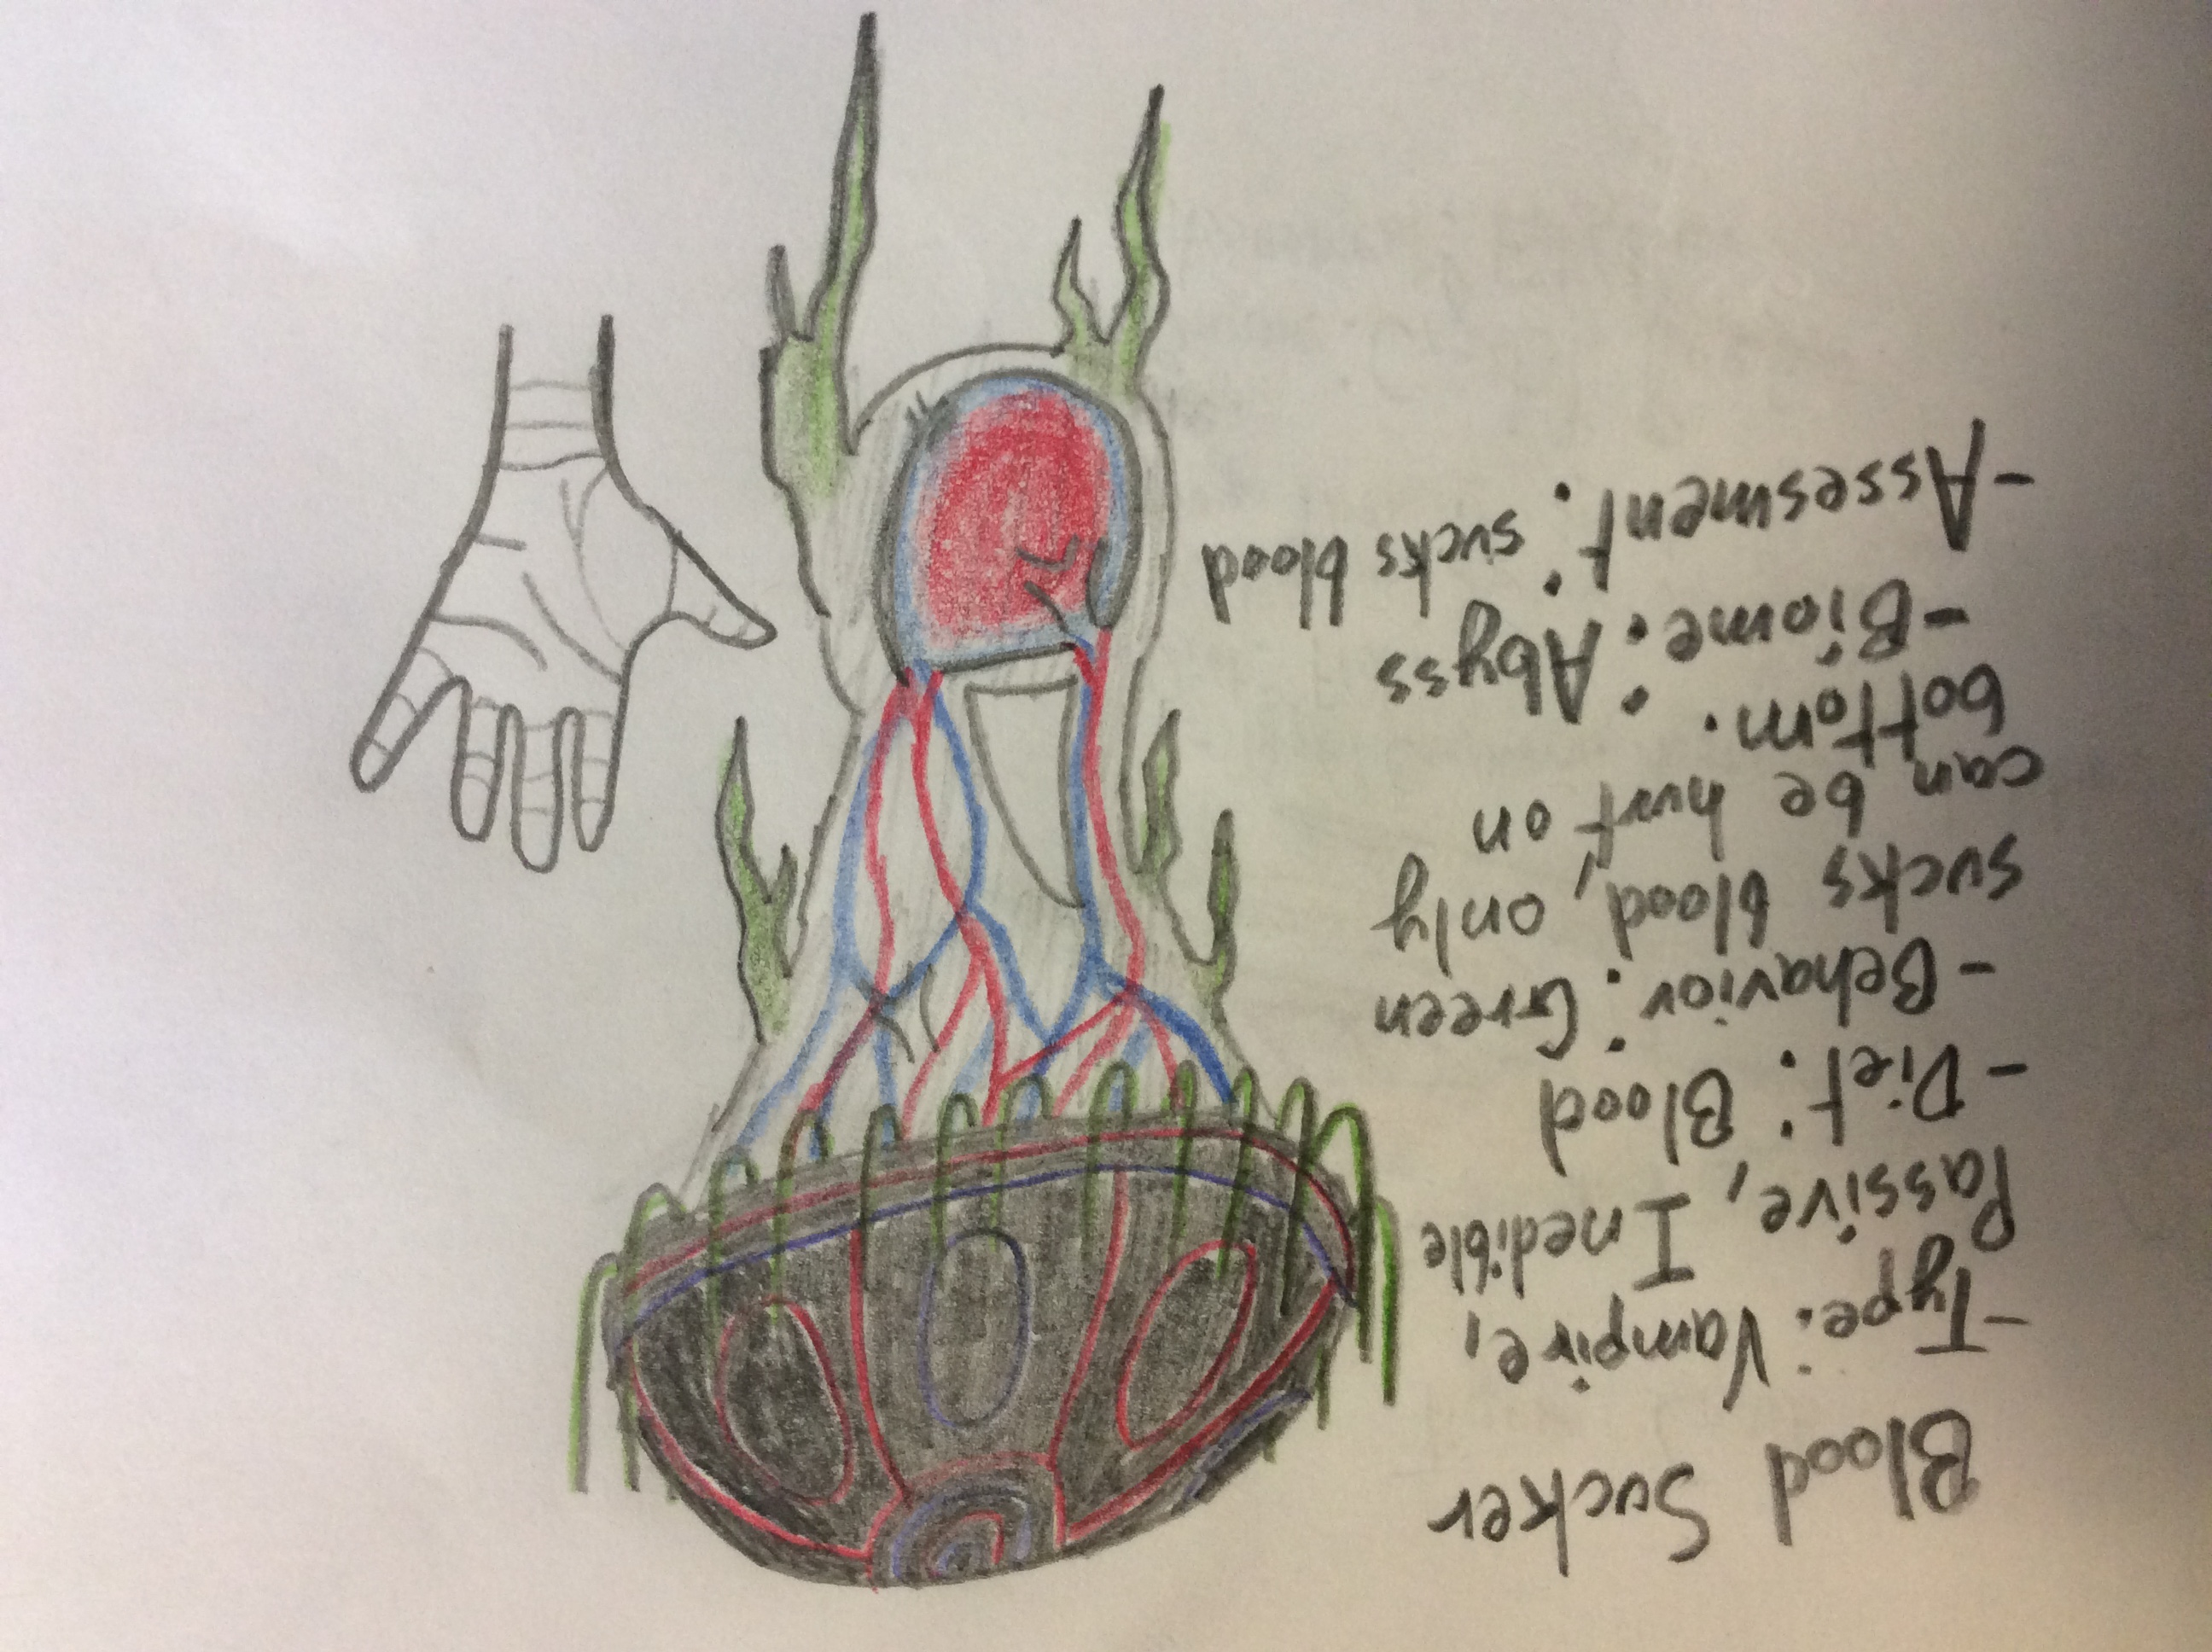 Blood Sucker
-Type: Vampire,
Passive, Inedible
-Diet: Blood
-Behavior: Green
sucks blood, only
can be hurt on
bottom.
-Biome: Abyss
-Assesment: sucks blood